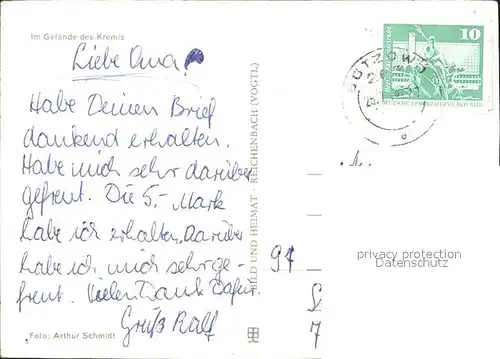 Im Gelände des Kremls
Liebe Oma!
Habe Deinen Brief
dankend erhalten.
Habe mich sehr darüber
gefreut. Die 5.- Mark
habe ich erhalten. Darüber
habe ich mich sehr ge-
freut. Vielen Dank dafür.
Gruß Ralf
Foto: Arthur Schmidt
BILD UND HEIMAT · REICHENBACH (VOGTL)
10
BÜTZOW
DEUTSCHE DEMOKRATISCHE REPUBLIK
privacy protection
Datenschutz